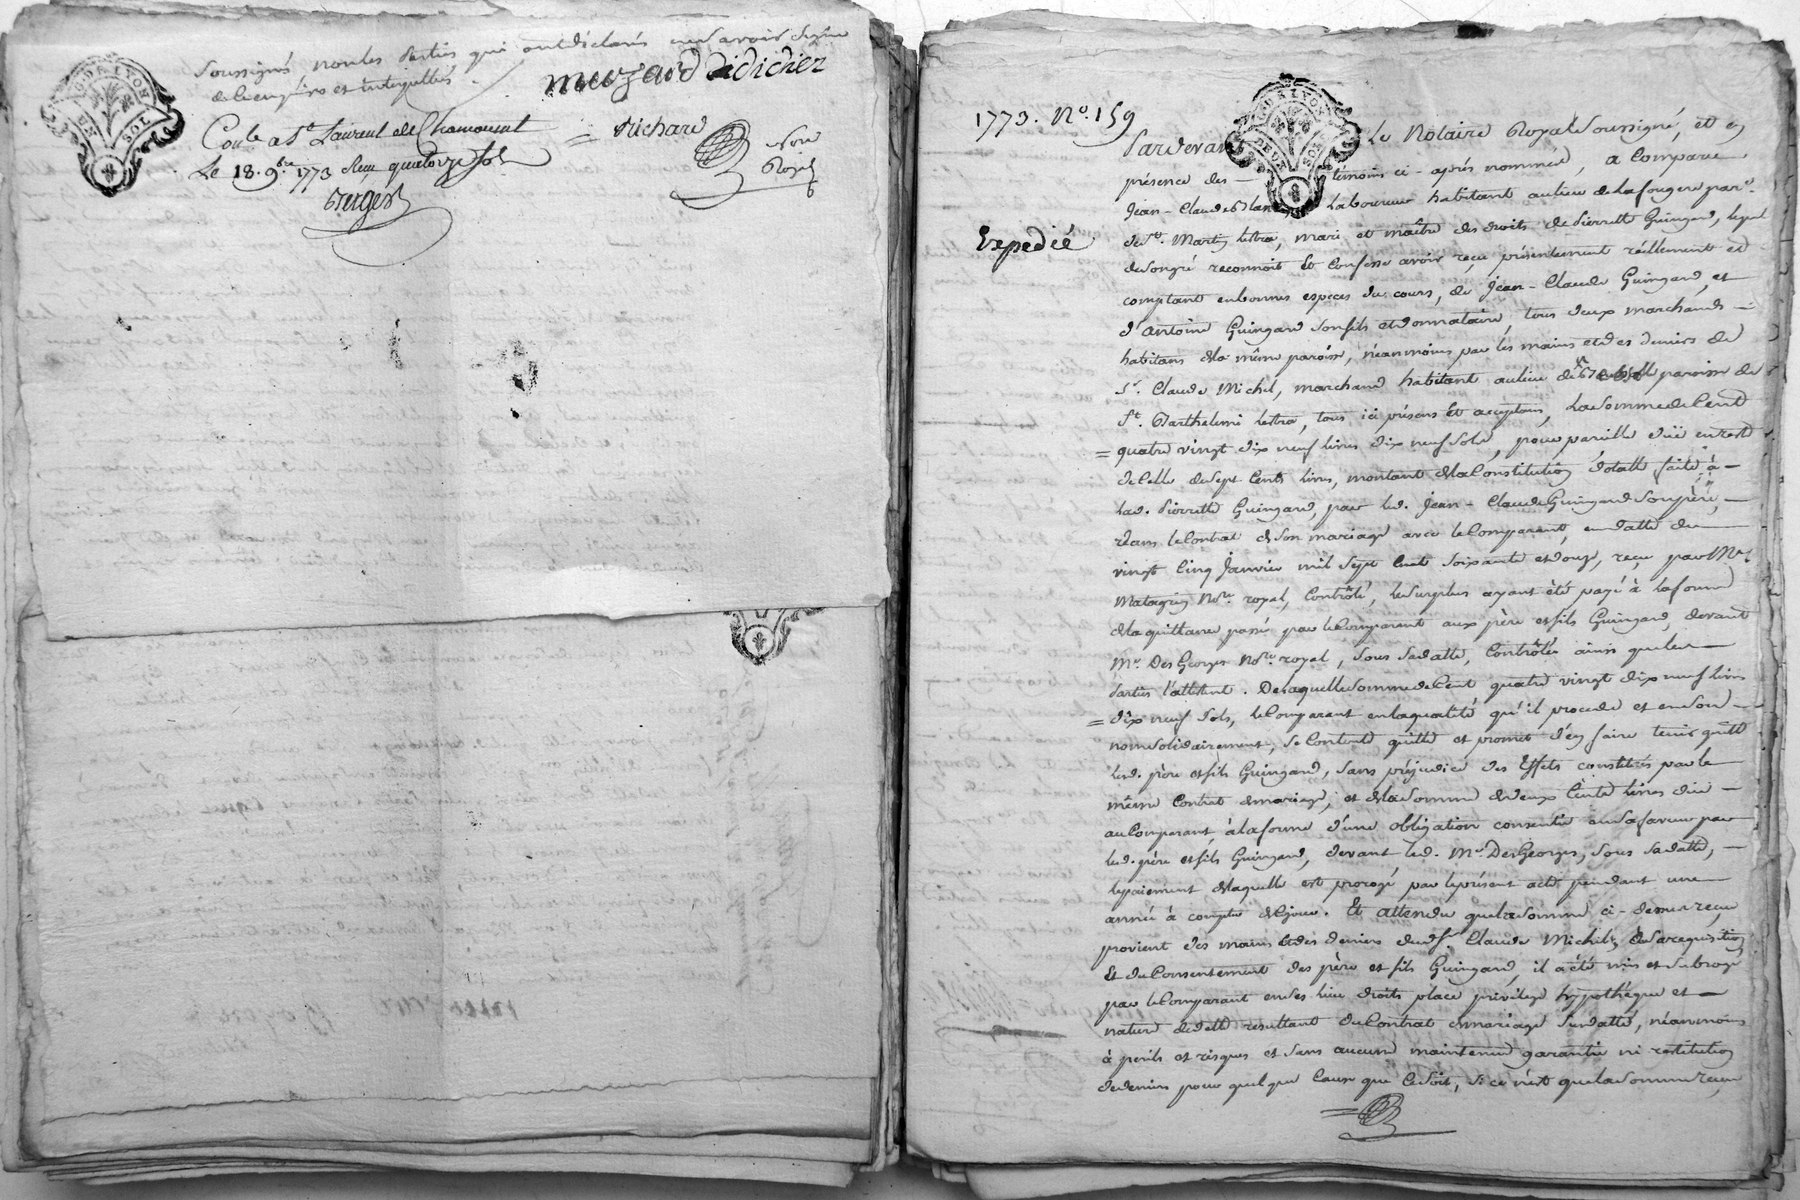 soussignés non les parties qui ont déclaré ne savoir signer
de ce enquis et interpellés.
muzard didiehier
GEN. DE LYON
DEUX SOL
Con.le a S.t Laurent de Chamousset
Le 18. 9.bre 1773 Reçu quatorze sols
Berger
Richard
No.re
Royal
1773. N.o 159
GEN. DE LYON
DEUX SOL
Expedié
Pardevant Le Notaire Royal Soussigné, et en
présence des témoins ci-après nommés, a Comparu
Jean-Claude Blan Laboureur habitant au lieu de la fougere par.e
de S.t Martin lestra, mari et maître des droits de Pierrette Guingard, lequel
de son gré reconnoit Et Confesse avoir reçu présentement réellement et
comptant en bonnes especes du cours, de Jean-Claude Guingard, et
d'antoine Guingard son fils et donnataire, tous deux marchands
habitans de la même paroisse, néanmoins par les mains et des deniers de
S.r Claude Michel, marchand habitant au lieu de paroisse de
S.t Barthelemi lestra, tous ici présens Et acceptans, La Somme de Cent
quatre vingt dix neuf livres dix neuf sols, pour pareille düe en reste
de celle de Sept Cents livres, montant de la Constitution dotalle faite à
lad. Pierrette Guingard, par led. Jean-Claude Guingard Son père,
dans le Contrat de Son mariage avec le Comparant, en datte du
vingt Cinq Janvier mil Sept Cent Soixante et douze, reçu par M.e
Matagrin No.re royal, Contrôlé, le Surplus ayant été payé à la forme
de la quittance passé par le Comparant aux père et fils Guingard, devant
M.e DesGeorges No.re royal, Sous Sa datte, Contrôlée ainsi que les
Parties l'attestent. De laquelle Somme de Cent quatre vingt dix neuf livres
dix neuf Sols, le Comparant en la qualité qu'il procede et en Son
nom Solidairement, Se Contente quitte et promet d'en faire tenir quitte
lesd. père et fils Guingard, Sans préjudice des Effets constitués par le
même Contrat de mariage, et de la Somme de deux Cents livres düe
au Comparant à la forme d'une obligation consentie en Sa faveur par
lesd. père et fils Guingard, devant led. M.e DesGeorges, Sous Sa datte,
le paiement de laquelle est prorogé par le présent acte pendant une
année à compter de ce jour. Et attendu que la Somme ci-dessus reçue
provient des mains Et des deniers dud. S.r Claude Michel, à Sa requisition
Et du Consentement des père et fils Guingard, il a été mis et Subrogé
par le Comparant en Ses lieu droits place privilege hypothéque et
nature de dette resultant du Contrat de mariage Susdatté, néanmoins
à perils et risques et Sans aucune maintenue garantie ni restitution
de deniers pour quelque Cause que Ce Soit, Si ce n'est que la Somme reçue